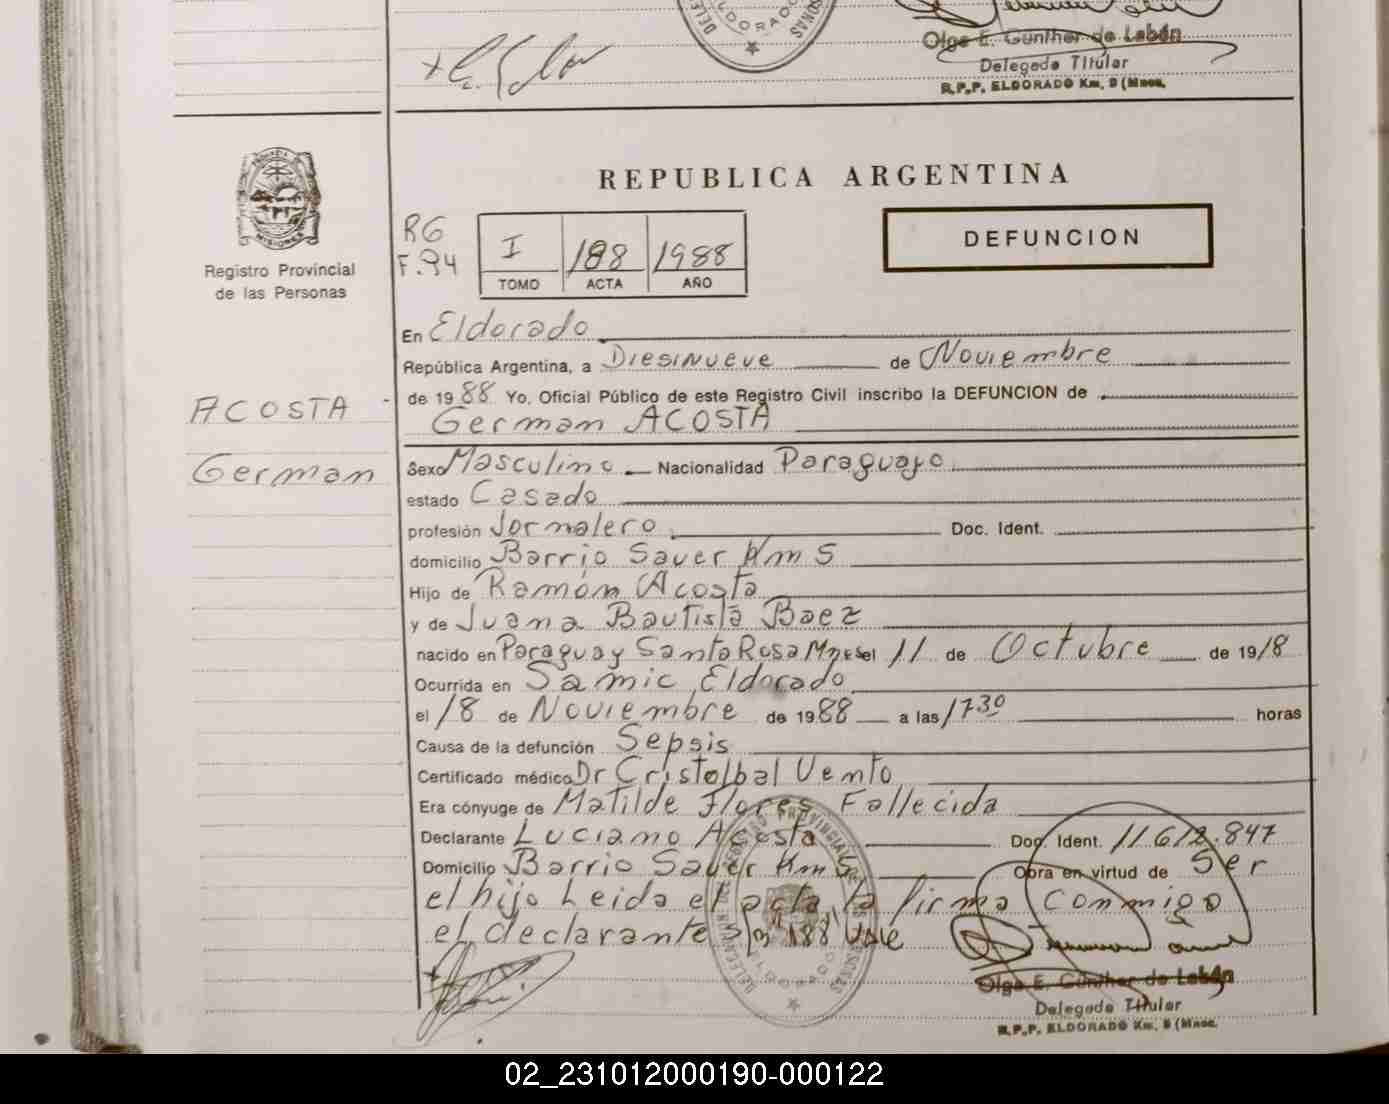 DELE ELDORADO SONAS
Olga E. Günther de Labán
Delegada Titular
R.P.P. ELDORADO Km. 9 (Mnes.
PROVINCIA DE
MISIONES
Registro Provincial
de las Personas
REPUBLICA ARGENTINA
RG
F.94
I 188 1988
TOMO ACTA AÑO
DEFUNCION
ACOSTA
German
En Eldorado
República Argentina, a Diesinueve de Noviembre
de 1988 Yo, Oficial Público de este Registro Civil inscribo la DEFUNCION de
German ACOSTA
Sexo Masculino Nacionalidad Paraguayo
estado Casado
profesión Jornalero. Doc. Ident.
domicilio Barrio Sauer Km 5
Hijo de Ramón Acosta
y de Juana Bautista Baez
nacido en Paraguay Santa Rosa Mnes el 11 de Octubre de 1918
Ocurrida en Samic Eldorado
el 18 de Noviembre de 1988 a las 17 30 horas
Causa de la defunción Sepsis
Certificado médico Dr Cristolbal Vento
Era cónyuge de Matilde Flores Fallecida
Declarante Luciano Acosta Doc. Ident. 11.612.847
Domicilio Barrio Sauer Km 5 Obra en virtud de Ser
el hijo Leida el acta la firma Conmigo
el declarante 188 Vale
Olga E. Günther de Labán
Delegada Titular
R.P.P. ELDORADO Km. 9 (Mnes.
02_231012000190-000122